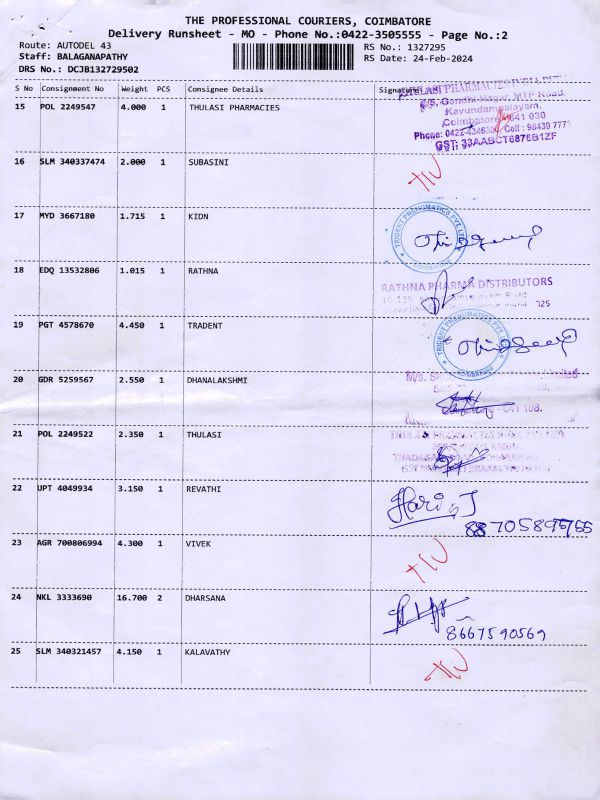 THE PROFESSIONAL COURIERS, COIMBATORE
Delivery Runsheet - MO - Phone No.:0422-3505555 - Page No.:2
Route: AUTODEL 43
RS No.: 1327295
Staff: BALAGANAPATHY
RS Date: 24-Feb-2024
DRS No.: DCJB132729502
S No Consignment No Weight PCS Consignee Details Signature
15 POL 2249547 4.000 1 THULASI PHARMACIES
THULASI PHARMACIES INDIA
Gandhi Nagar, MTP Road,
Kavundampalayam,
Coimbatore 641 030
Phone: 0422-4346300 Cell: 98439 7771
GST: 33AABCT6878B1ZF
16 SLM 340337474 2.000 1 SUBASINI
17 MYD 3667180 1.715 1 KIDN
TRIDENT PNEUMATICS PVT. LTD.
COIMBATORE
18 EDQ 13532806 1.015 1 RATHNA
RATHNA PHARMA DISTRIBUTORS
19 PGT 4578670 4.450 1 TRADENT
TRIDENT PNEUMATICS PVT. LTD.
COIMBATORE
20 GDR 5259567 2.550 1 DHANALAKSHMI
21 POL 2249522 2.350 1 THULASI
22 UPT 4049934 3.150 1 REVATHI
Hari J
23 AGR 700806994 4.300 1 VIVEK
24 NKL 3333690 16.700 2 DHARSANA
8667590569
25 SLM 340321457 4.150 1 KALAVATHY